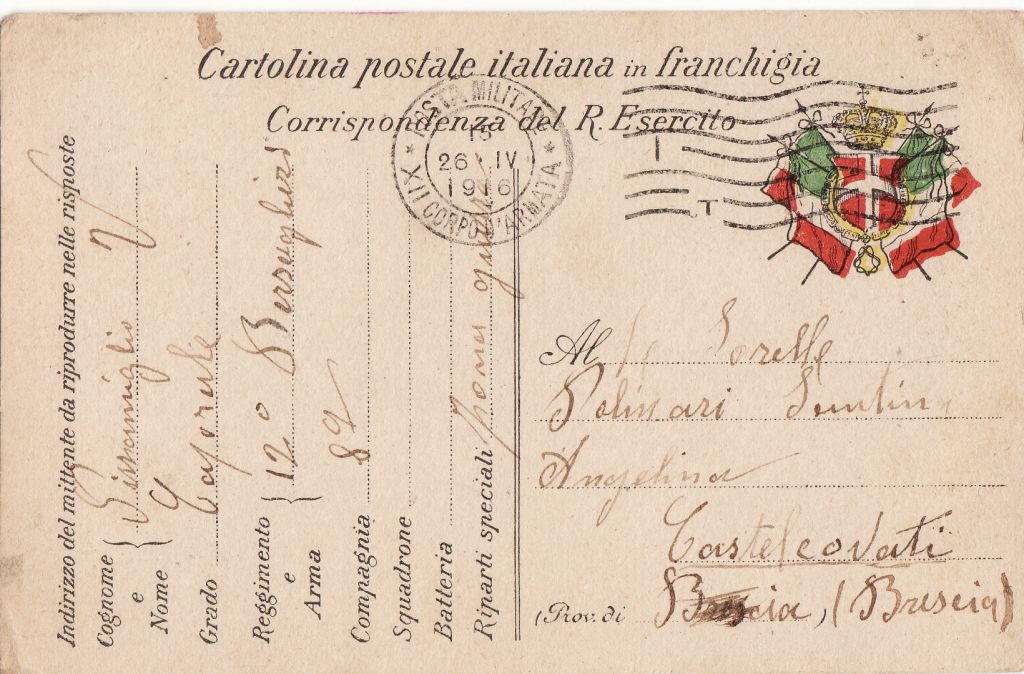 Cartolina postale italiana in franchigia
Corrispondenza del R. Esercito
POSTA MILITARE
15
26 IV
1916
XII CORPO D'ARMATA
Indirizzo del mittente da riprodurre nelle risposte
Cognome e Nome
Grado Caporale
Reggimento e Arma 12º Bersaglieri
Compagnia 8ª
Squadrone
Batteria
Riparti speciali Zona
Al Sorelle
Polissari
Angelina
Castelcovati
(Prov. di Brescia, (Brescia)